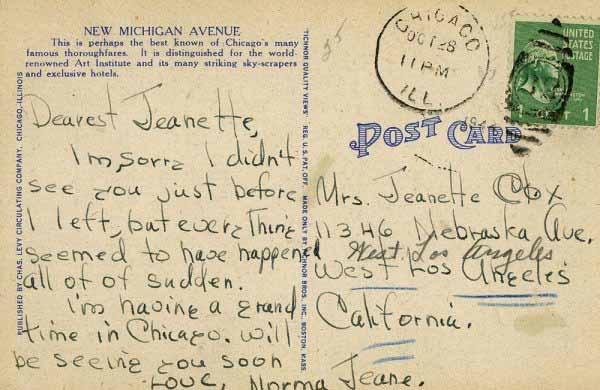 NEW MICHIGAN AVENUE
This is perhaps the best known of Chicago's many
famous thoroughfares. It is distinguished for the world-
renowned Art Institute and its many striking sky-scrapers
and exclusive hotels.
PUBLISHED BY CHAS. LEVY CIRCULATING COMPANY, CHICAGO, ILLINOIS
Dearest Jeanette,
I'm sorry I didn't
see you just before
I left, but every thing
seemed to have happened
all of of sudden.
I'm having a grand
time in Chicago. will
be seeing you soon
Love, Norma Jeane.
TICHNOR QUALITY VIEWS REG. U.S. PAT. OFF. MADE ONLY BY TICHNOR BROS., INC. BOSTON, MASS.
CHICAGO
OCT 28
11 PM
ILL.
UNITED
STATES
POSTAGE
1 1
POST CARD
Mrs. Jeanette Cox
11346 Nebraska Ave.
West Los Angeles
West Los Angeles
California.